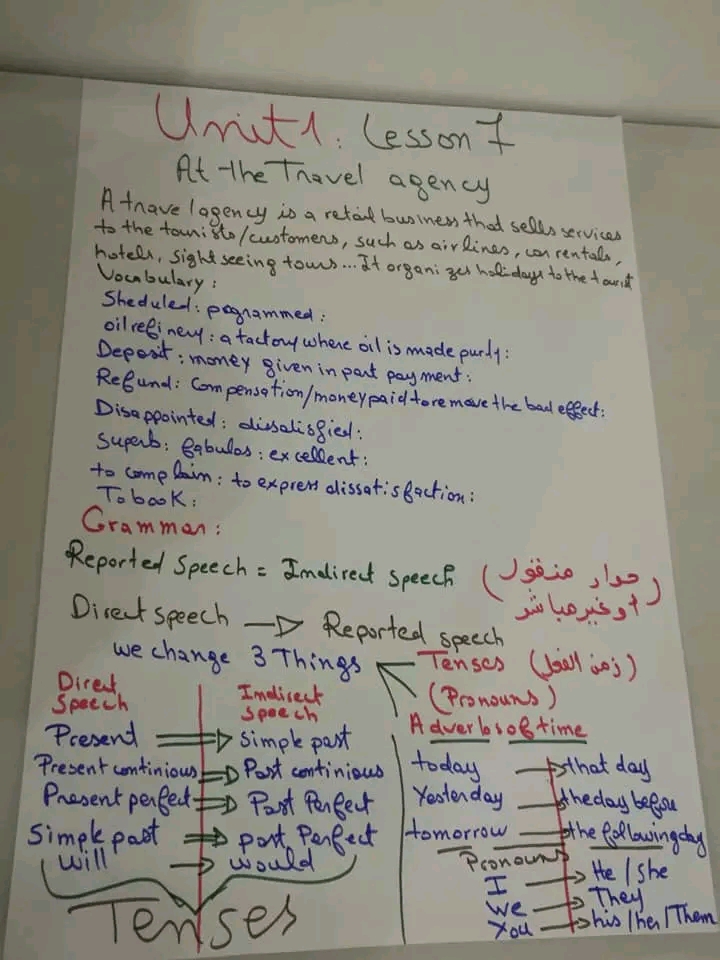 Unit 1: Lesson 7
At the Travel agency
A travel agency is a retail business that sells services
to the tourists/customers, such as airlines, car rentals,
hotels, sight seeing tours... It organizes holidays to the tourist
Vocabulary:
Sheduled: programmed:
oil refinery: a factory where oil is made purely:
Deposit: money given in part payment:
Refund: Compensation/money paid to remove the bad effect:
Disappointed: dissatisfied:
Superb: fabulos: excellent:
to complain: to express dissatisfaction:
To book:
Grammar:
Reported speech = Indirect speech (حوار منقول
أو غير مباشر)
Direct speech → Reported speech
we change 3 Things
Tenses (زمن الفعل)
(Pronouns)
Adverbs of time
Direct Speech
Indirect speech
Present ⇒ simple past
Present continious ⇒ Past continious
Present perfect ⇒ Past Perfect
Simple past ⇒ past Perfect
will → would
Tenses
today → that day
Yesterday → the day before
tomorrow → the following day
Pronouns
I → He / she
We → They
You → his/her/Them